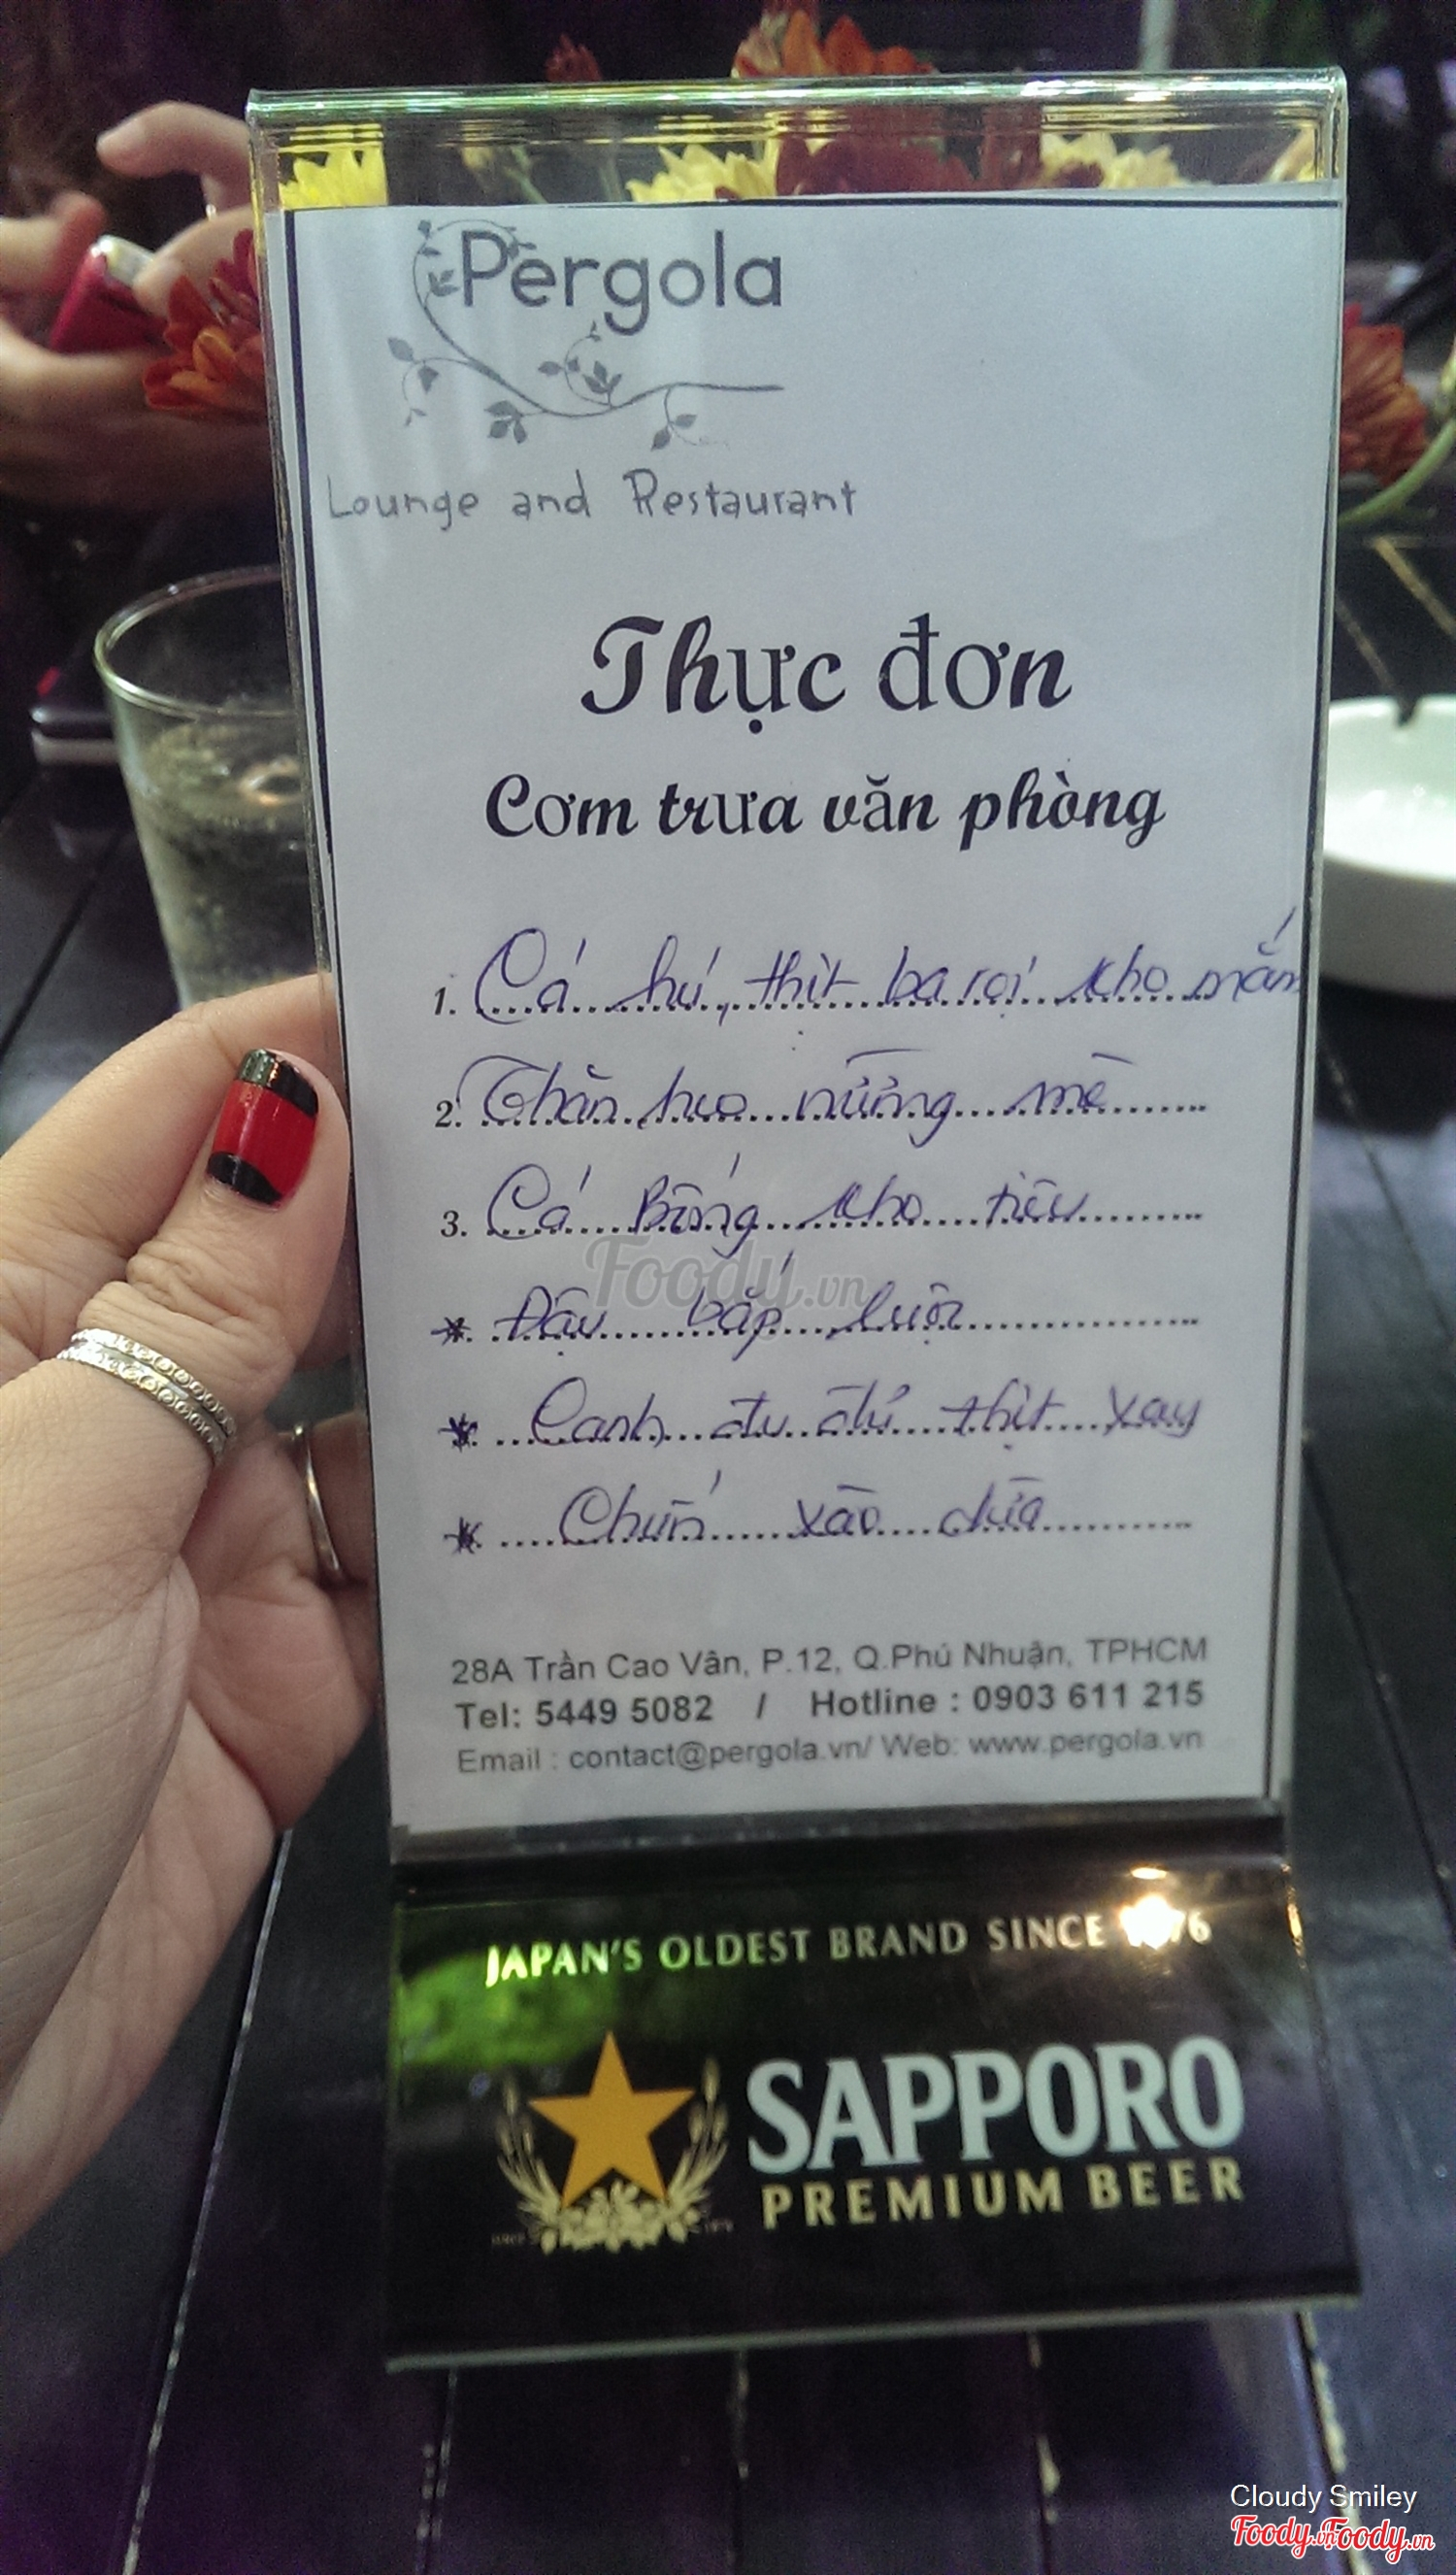 Pergola
Lounge and Restaurant
Thực đơn
Cơm trưa văn phòng
1. Cá hú, thịt ba rọi kho mắm
2. Thăn heo nướng mè
3. Cá Bống kho tiêu
Foody.vn
* Đậu bắp luộc
* Canh đu đủ thịt xay
* Chuối xào dừa
28A Trần Cao Vân, P.12, Q.Phú Nhuận, TPHCM
Tel: 5449 5082 / Hotline : 0903 611 215
Email : contact@pergola.vn/ Web: www.pergola.vn
JAPAN'S OLDEST BRAND SINCE
SAPPORO
PREMIUM BEER
Cloudy Smiley
Foody.vn Foody.vn